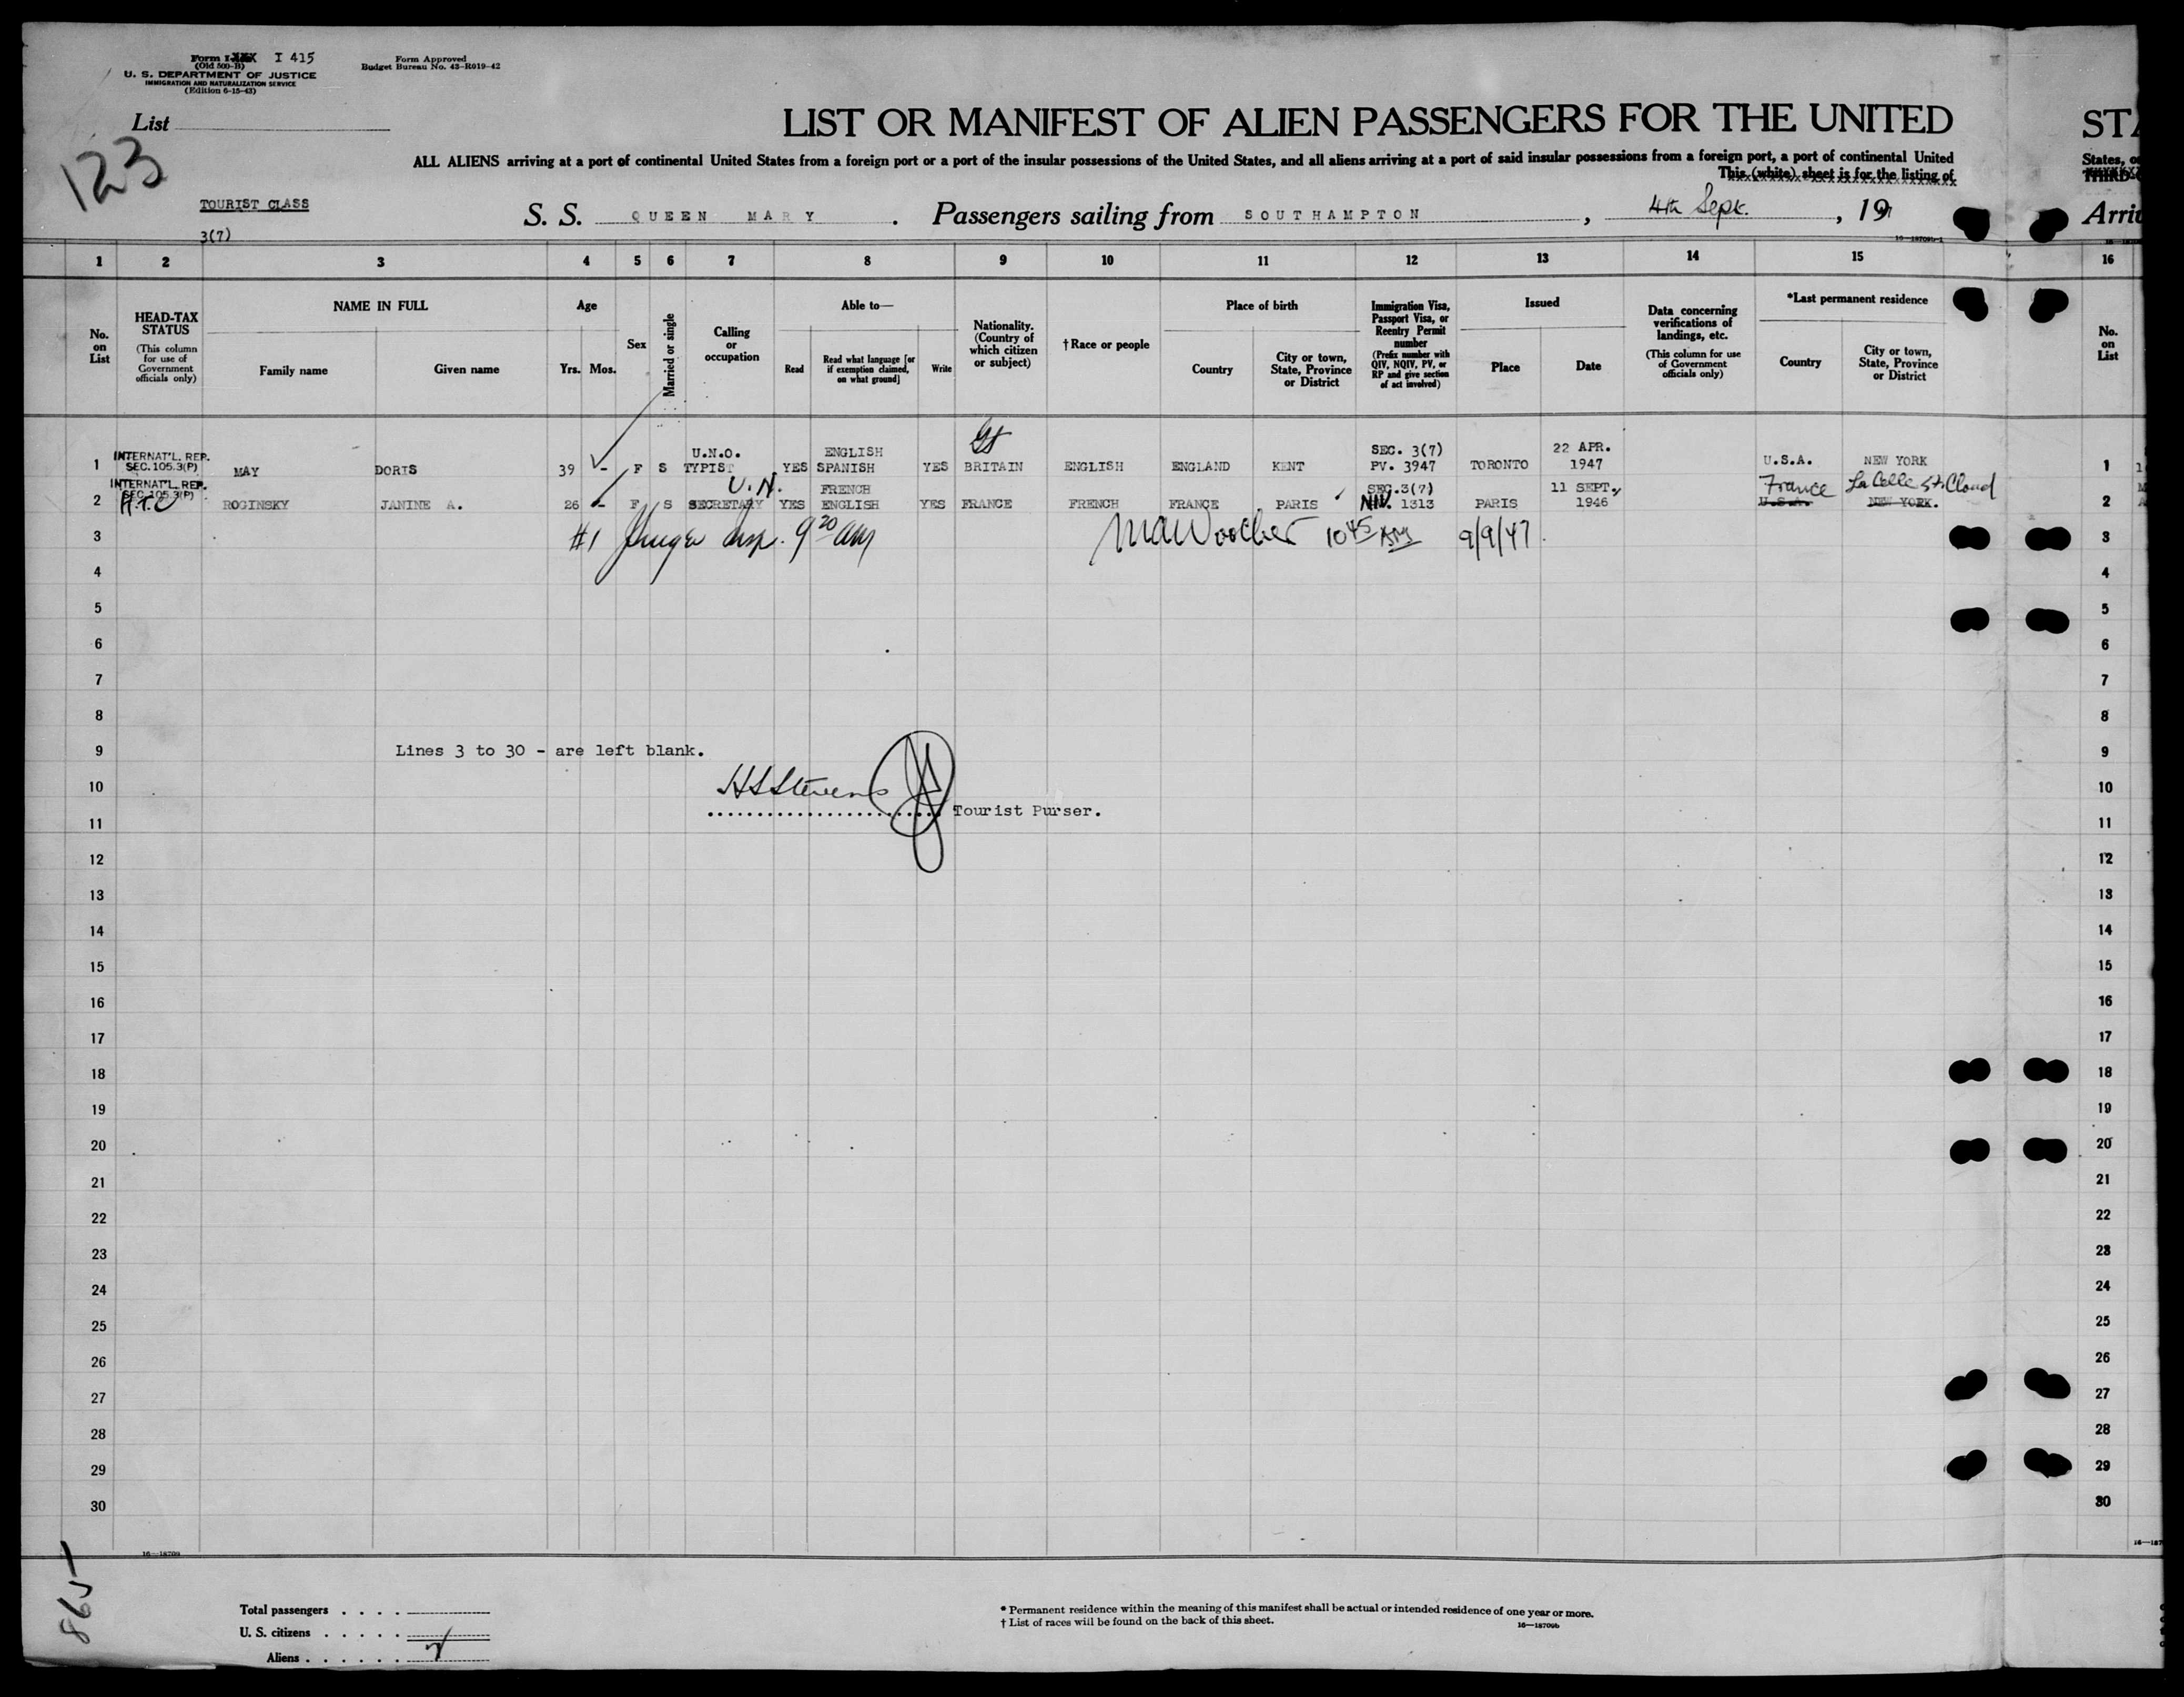 Form I-XXX I 415
(Old 500-B)
U. S. DEPARTMENT OF JUSTICE
IMMIGRATION AND NATURALIZATION SERVICE
(Edition 6-15-43)
Form Approved
Budget Bureau No. 43-R019-42
List
123
LIST OR MANIFEST OF ALIEN PASSENGERS FOR THE UNITED
STA
ALL ALIENS arriving at a port of continental United States from a foreign port or a port of the insular possessions of the United States, and all aliens arriving at a port of said insular possessions from a foreign port, a port of continental United
States, o
This (white) sheet is for the listing of
THIRD-
TOURIST CLASS
3(7)
S. S. QUEEN MARY . Passengers sailing from SOUTHAMPTON , 4th Sept. , 19
Arri
1 2 3 4 5 6 7 8 9 10 11 12 13 14 15 16
No. on List
HEAD-TAX STATUS
(This column for use of Government officials only)
NAME IN FULL
Family name Given name
Age
Yrs. Mos.
Sex
Married or single
Calling or occupation
Able to—
Read
Read what language [or if exemption claimed, on what ground]
Write
Nationality. (Country of which citizen or subject)
†Race or people
Place of birth
Country
City or town, State, Province or District
Immigration Visa, Passport Visa, or Reentry Permit number
(Prefix number with QIV, NQIV, PV, or RP and give section of act involved)
Issued
Place Date
Data concerning verifications of landings, etc.
(This column for use of Government officials only)
*Last permanent residence
Country
City or town, State, Province or District
No. on List
INTERNAT'L. REP. U.N.O. ENGLISH SEC. 3(7) 22 APR.
1 SEC. 105.3(P) MAY DORIS 39 - F S TYPIST YES SPANISH YES BRITAIN ENGLISH ENGLAND KENT PV. 3947 TORONTO 1947 U.S.A. NEW YORK 1
INTERNAT'L. REP. U.N. FRENCH SEC.3(7) 11 SEPT. France La Celle St. Cloud
2 SEC. 105.3(P) H.T.C ROGINSKY JANINE A. 26 - F S SECRETARY YES ENGLISH YES FRANCE FRENCH FRANCE PARIS NIV. 1313 PARIS 1946 U.S.A. NEW YORK. 2
3 #1 Insp. 9 20 AM 10 45 AM 9/9/47 3
4 4
5 5
6 6
7 7
8 8
9 Lines 3 to 30 - are left blank. 9
10 HS Stevens 10
11 Tourist Purser. 11
12 12
13 13
14 14
15 15
16 16
17 17
18 18
19 19
20 20
21 21
22 22
23 23
24 24
25 25
26 26
27 27
28 28
29 29
30 30
16—18709
Total passengers
U. S. citizens
Aliens
* Permanent residence within the meaning of this manifest shall be actual or intended residence of one year or more.
† List of races will be found on the back of this sheet.
16—18709b